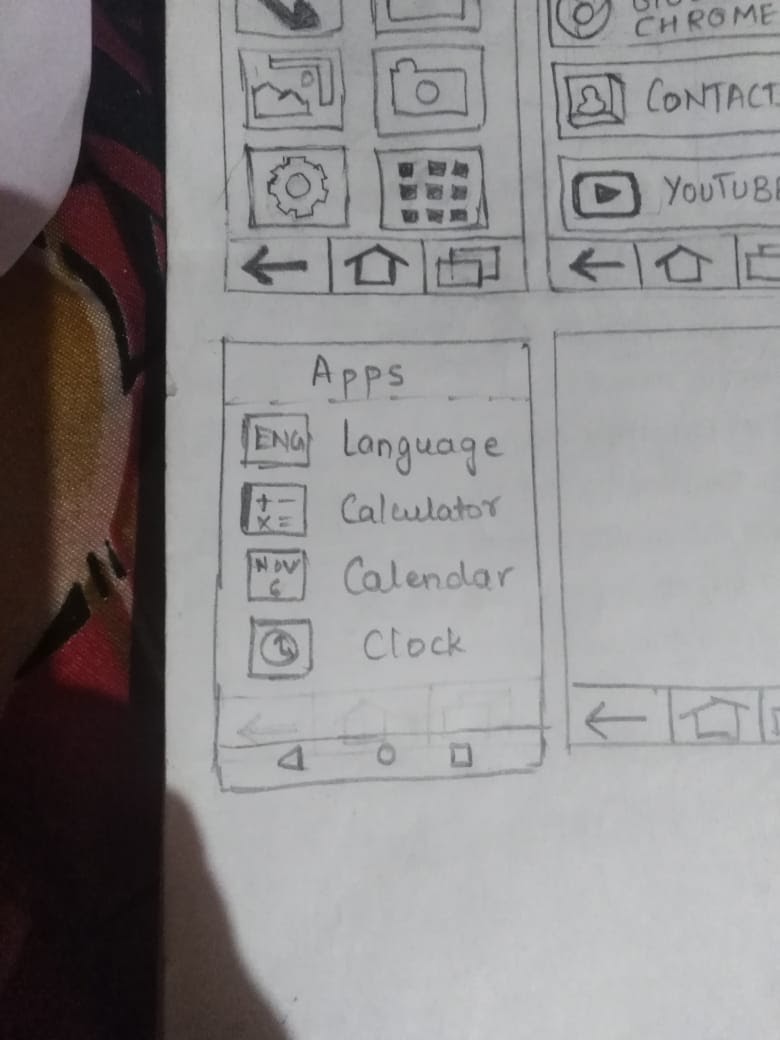 CHROME
CONTACT
YOUTUBE
Apps
ENG Language
+ -
x =
Calculator
NOV
6
Calendar
Clock